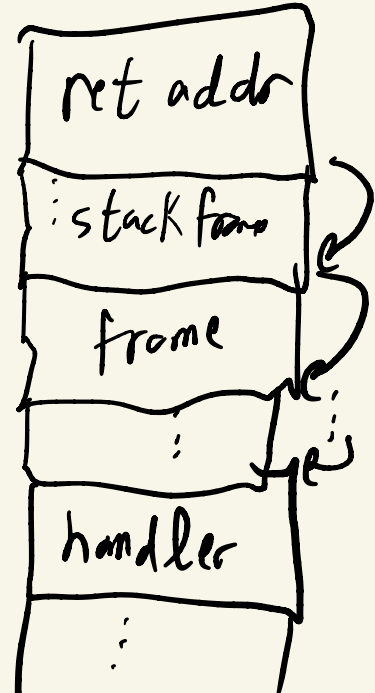 ret addr
stack frame
frame
handler